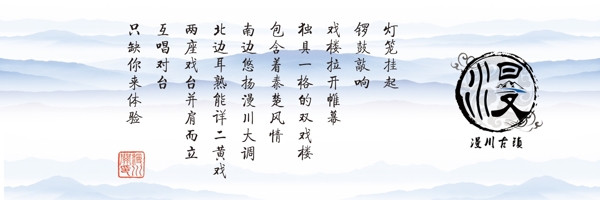 灯笼挂起
锣鼓敲响
戏楼拉开帷幕
独具一格的双戏楼
包含着秦楚风情
南边悠扬漫川大调
北边耳熟能详二黄戏
两座戏台并肩而立
互唱对台
只缺你来体验
漫
漫川古镇